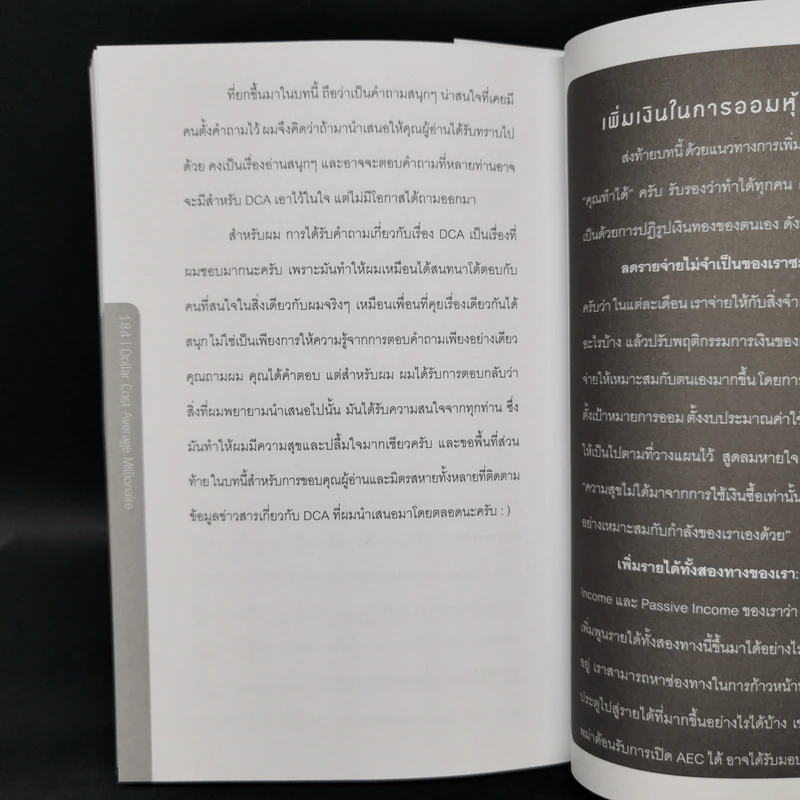 ที่ยกขึ้นมาในบทนี้ ถือว่าเป็นคำถามสนุกๆ น่าสนใจที่เคยมี
คนตั้งคำถามไว้ ผมจึงคิดว่าถ้ามานำเสนอให้คุณผู้อ่านได้รับทราบไป
ด้วย คงเป็นเรื่องอ่านสนุกๆ และอาจจะตอบคำถามที่หลายท่านอาจ
จะมีสำหรับ DCA เอาไว้ในใจ แต่ไม่มีโอกาสได้ถามออกมา
สำหรับผม การได้รับคำถามเกี่ยวกับเรื่อง DCA เป็นเรื่องที่
ผมชอบมากนะครับ เพราะมันทำให้ผมเหมือนได้สนทนาโต้ตอบกับ
คนที่สนใจในสิ่งเดียวกับผมจริงๆ เหมือนเพื่อนที่คุยเรื่องเดียวกันได้
สนุก ไม่ใช่เป็นเพียงการให้ความรู้จากการตอบคำถามเพียงอย่างเดียว
คุณถามผม คุณได้คำตอบ แต่สำหรับผม ผมได้รับการตอบกลับว่า
สิ่งที่ผมพยายามนำเสนอไปนั้น มันได้รับความสนใจจากทุกท่าน ซึ่ง
มันทำให้ผมมีความสุขและปลื้มใจมากเชียวครับ และขอพื้นที่ส่วน
ท้ายในบทนี้สำหรับการขอบคุณผู้อ่านและมิตรสหายทั้งหลายที่ติดตาม
ข้อมูลข่าวสารเกี่ยวกับ DCA ที่ผมนำเสนอมาโดยตลอดนะครับ : )
184 | Dollar Cost Average Millionaire
เพิ่มเงินในการออมหุ้
ส่งท้ายบทนี้ ด้วยแนวทางการเพิ่ม
"คุณทำได้" ครับ รับรองว่าทำได้ทุกคน
เป็นด้วยการปฏิรูปเงินทองของตนเอง ดัง
ลดรายจ่ายไม่จำเป็นของเราซะ
ครับว่า ในแต่ละเดือน เราจ่ายให้กับสิ่งจำ
อะไรบ้าง แล้วปรับพฤติกรรมการเงินของ
จ่ายให้เหมาะสมกับตนเองมากขึ้น โดยการ
ตั้งเป้าหมายการออม ตั้งงบประมาณค่าใช้
ให้เป็นไปตามที่วางแผนไว้ สูดลมหายใจ
"ความสุขไม่ได้มาจากการใช้เงินซื้อเท่านั้น
อย่างเหมาะสมกับกำลังของเราเองด้วย"
เพิ่มรายได้ทั้งสองทางของเรา:
Income และ Passive Income ของเราว่า
เพิ่มพูนรายได้ทั้งสองทางนี้ขึ้นมาได้อย่างไร
อยู่ เราสามารถหาช่องทางในการก้าวหน้า
ประตูไปสู่รายได้ที่มากขึ้นอย่างไรได้บ้าง เช
พม่าต้อนรับการเปิด AEC ได้ อาจได้รับมอบ